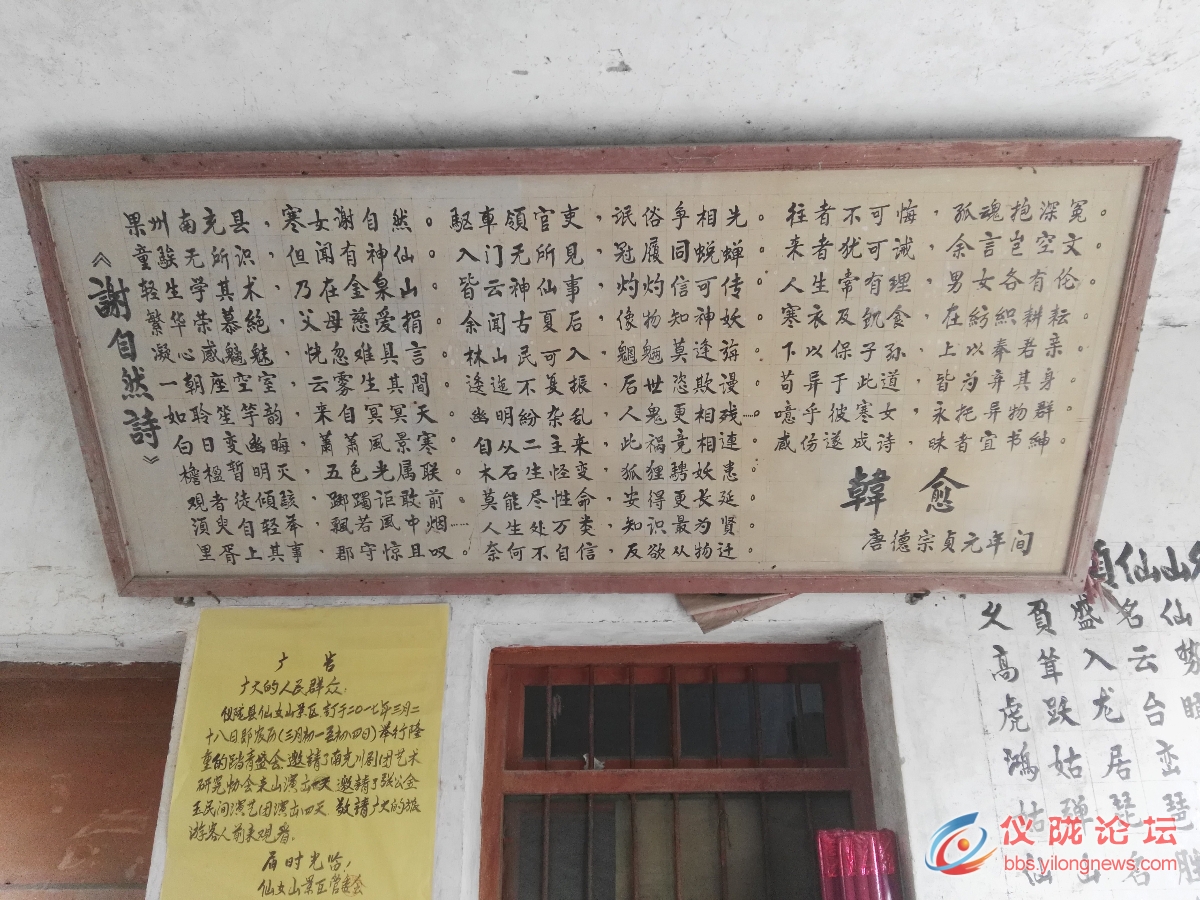 《謝自然詩》
果州南充县，寒女谢自然。
童騃无所识，但闻有神仙。
轻生学其术，乃在金泉山。
繁华荣慕絕，父母慈爱捐。
凝心感魑魅，恍忽难具言。
一朝座空室，云雾生其間。
如聆笙竽韵，来自冥冥天。
白日变幽晦，蕭蕭風景寒。
檐楹暂明灭，五色光属联。
观者徒傾駭，躑躅讵敢前。
須臾自轻举，飄若風中烟……
里胥上其事，郡守惊且叹。
駆車領官吏，氓俗争相先。
入门无所見，冠履同蜕蝉。
皆云神仙事，灼灼信可传。
余闻古夏后，像物知神妖。
林山民可入，魍魎莫逢旃。
逶迤不复振，后世恣欺漫。
幽明紛杂乱，人鬼更相残……
自从二主来，此祸竞相連。
木石生怪变，狐狸骋妖患。
莫能尽性命，安得更长延。
人生处万类，知识最为贤。
奈何不自信，反欲从物迁。
往者不可悔，孤魂抱深冤。
来者犹可诫，余言岂空文。
人生常有理，男女各有伦。
寒衣及飢食，在紡织耕耘。
下以保子孙，上以奉君亲。
苟异于此道，皆为弃其身。
噫乎彼寒女，永托异物群。
感伤遂成诗，昧者宜书紳。
韓愈
唐德宗貞元年间
广告
广大的人民群众：
仪陇县仙女山景区，訂于二0一七年三月二
十八日即农历(三月初一至初四日)举行隆
重的踏青盛会邀請了南充川剧团艺术
研究协会来山演出天 邀請了张公金
玉民间演艺团演出四天 敬請广大的旅
游客人前来观看。
届时光临，
仙女山景区管委会
頁仙山名
义質盛名仙
高耸入云势
虎跃龙台
鴻姑居峦
姑弹琵琶
仙山名胜
仪陇论坛
bbs.yilongnews.com